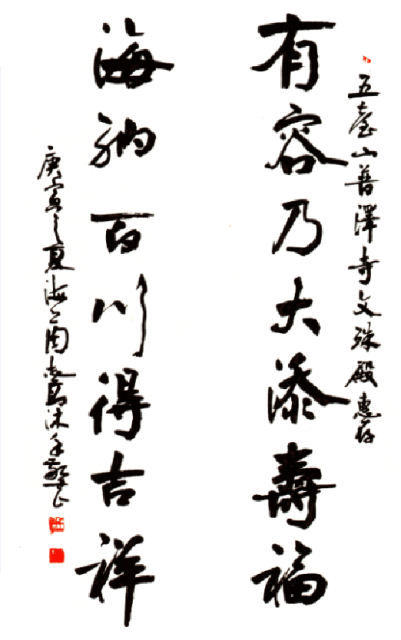 五臺山普澤寺文殊殿惠存
有容乃大添壽福
海納百川得吉祥
庚寅之夏海上周志高沐手敬